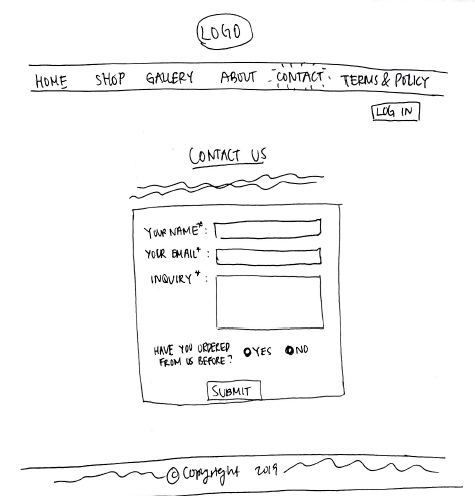 LOGO
HOME SHOP GALLERY ABOUT CONTACT TERMS & POLICY
LOG IN
CONTACT US
YOUR NAME*:
YOUR EMAIL*:
INQUIRY*:
HAVE YOU ORDERED
FROM US BEFORE? YES NO
SUBMIT
© Copyright 2019